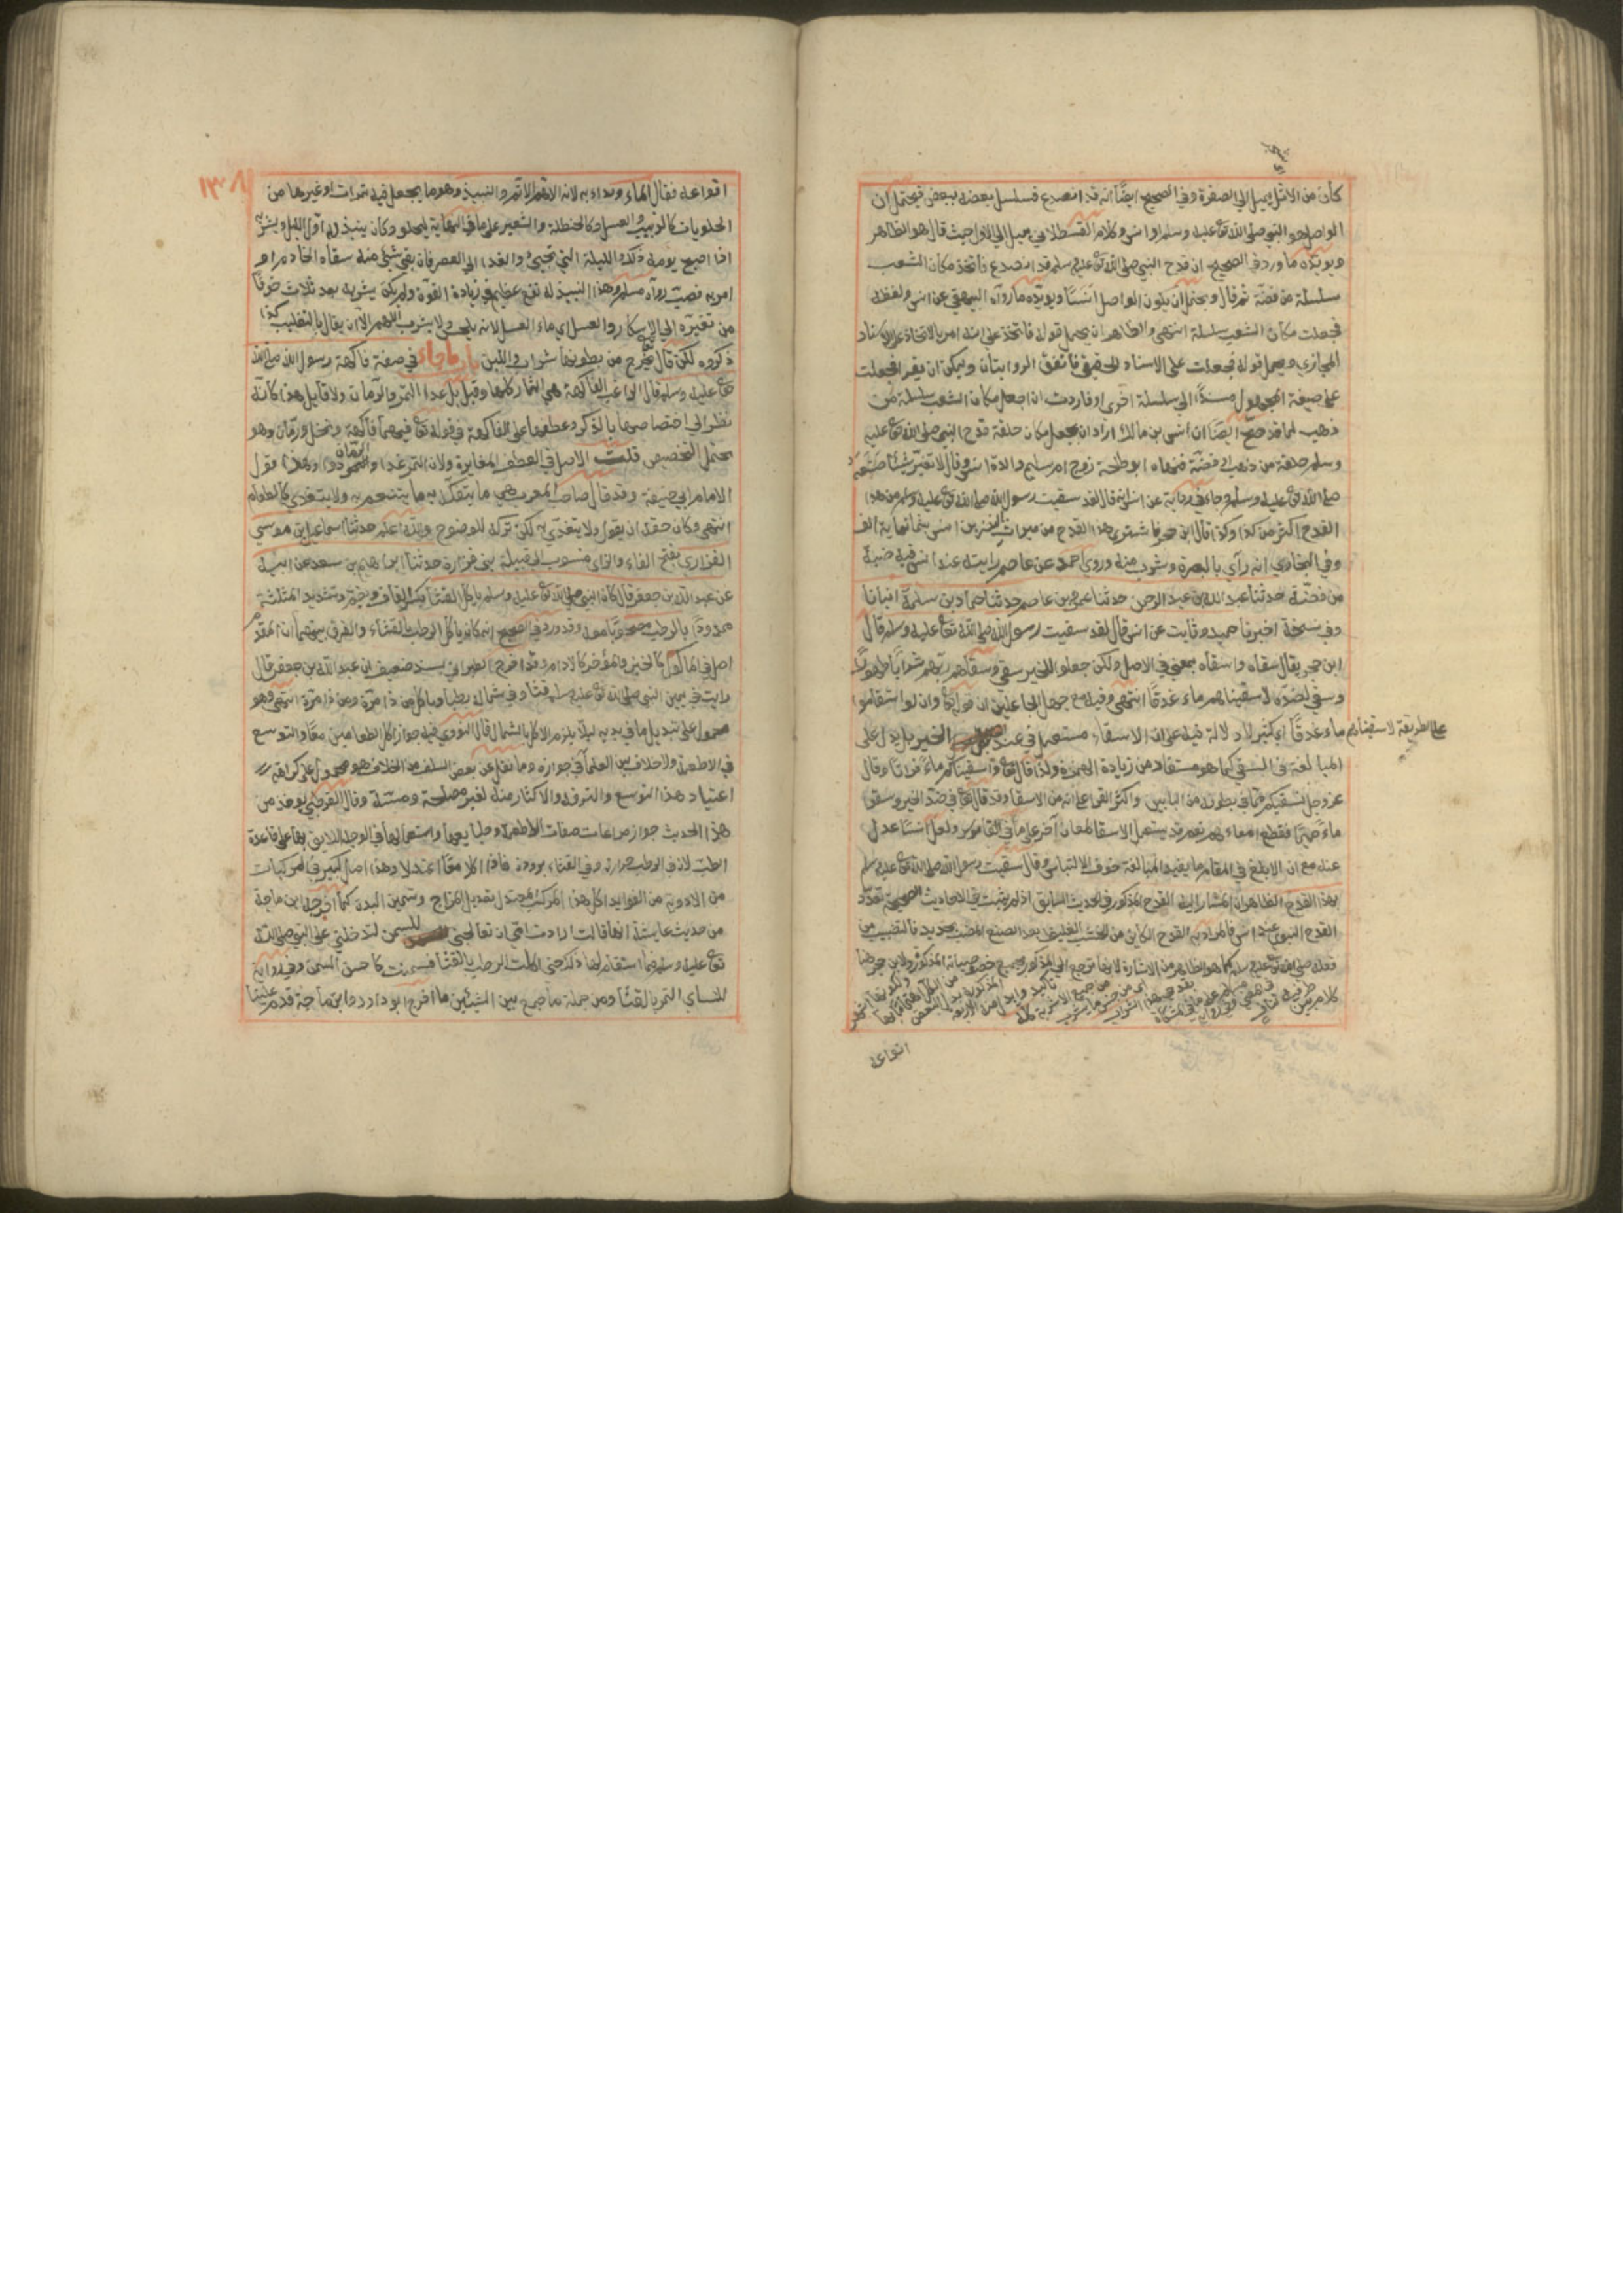 كأن من الاثل يميل الي الصفرة وفي الصحيح ايضًا انه قد انصدع فسلسل بعضه ببعض فيحتمل ان
الواصل هو النبي صلى الله تع عليه وسلم او انس وكلام القسطلاني يميل الي الاول حيث قال هو الظاهر
ويؤيده ما ورد في الصحيح ان قدح النبي صلى الله تع عليه وسلم قد انصدع فاتخذ مكان الشعب
سلسلة من فضة ثم قال ويحتمل ان يكون الواصل انسًا ويؤيده ما رواه البيهقي عن انس ولفظه
فجعلت مكان الشعب سلسلة انتهى والظاهر ان يحمل قوله فاتخذ على انه امر بالاتخاذ على الاسناد
المجازي ويحمل قوله فجعلت على الاسناد الحقيقي فاتفق الروايتان ويمكن ان يقرا فجعلت
على صيغة المجهول مسندًا الى سلسلة اخرى او فاردت ان اجعل مكان الشعب سلسلة من
ذهب لما قد صح ايضًا ان انس بن مالك اراد ان يجعل مكان حلقة قدح النبي صلى الله تع عليه
وسلم حلقة من ذهب او فضة فنهاه ابو طلحة زوج ام سليم والدة انس وقال لا تغير شيئًا صنعه
صلى الله تع عليه وسلم وجاء في رواية عن انس انه قال لقد سقيت رسول الله صلى الله تع عليه وسلم من هذا
القدح اكثر من كذا وكذا قال ابن حجر فاشتري هذا القدح من ميراث النضر بن انس بثمانماية الف
وفي البخاري انه رآي بالبصرة وشرب منه وروي احمد عن عاصم رايته عند انس فيه ضبة
من فضّة حدثنا عبد الله بن عبد الرحمن حدثنا عمرو بن عاصم حدثنا حماد بن سلمة انبانا
وفي نسخة اخبرنا حميد وثابت عن انس قال لقد سقيت رسول الله صلى الله تع عليه وسلم قال
ابن حجر يقال سقاه واسقاه بمعنى في الاصل ولكن جعلوا للخير سقى وسقاهم ربهم شرابًا طهورًا
وسقى لضده لاسقيناهم ماء غدقًا انتهى وفيه مع جهل الجاعلين ان قوله تع وان لو استقاموا
على الطريقة لاسقيناهم
ماء غدقًا اي كثير لا دلالة فيه على ان الاسقاء مستعمل في غير الخير بل يدل على
المبالغة في السقي كما هو مستفاد من زيادة الهمزة ولذا قال تع واسقيناكم ماءً فراتًا وقال
عز وجل نسقيكم مما في بطونه من البابين واكثر القراء على انه من الاسقا وقد قال تع في ضد الخير وسقوا
ماءً حميمًا فقطع امعاءهم نعم قد يستعمل الاسقا لمعان آخر على ما في القاموس ولعل انسًا عدل
عنه مع ان الابلغ في المقام ما يفيد المبالغة خوف الالتباس وقال سقيت رسول الله صلى الله تع عليه وسلم
بهذا القدح الظاهر ان المشار اليه القدح المذكور في الحديث السابق اذ لم يثبت في الاحاديث الصحيحة تعدد
القدح النبوي عند انس فالمراد به القدح الكاين من الخشب الغليظ
انواعه
١٣٨
انواعه فقال الماء وبداء به لانه الاهم الاتم والنبيذ وهو ما يجعل فيه تمرات او غيرها من
الحلويات كالزبيب والعسل وكالحنطة والشعير على ما في النهاية ليحلو وكان ينبذ له اول الليل ويشربه
اذا اصبح يومه ذلك والليلة التي تجيئ والغد الى العصر فان بقي شئ منه سقاه الخادم او
امر به فصب رواه مسلم وهذا النبيذ له نفع عظيم في زيادة القوة ولم يكن يشربه بعد ثلاث خوفًا
من تغيره الي الاسكار والعسل اي ماء العسل لانه يلعق ولا يشرب اللهم الا ان يقال بالتغليب كذا
ذكروه لكن قال تع يخرج من بطونها شراب واللبن باب ما جاء في صفة فاكهة رسول الله صلى الله
تع عليه وسلم قال الراغب الفاكهة هي الثمار كلها وقيل بل عدا التمر والرمان ولا قايل هذا كانه
نظر الي اختصاصهما بالذكر وعطفهما على الفاكهة في قوله تع فيهما فاكهة ونخل ورمان وهو
يحتمل التخصيص قلت الاصل في العطف المغايرة ولان التمر غذا والرمان دوا وهذا قول
الامام ابي حنيفة وقد قال صاحب المغرب هي ما يتفكه به ما يتنعم به ولا يتغذي كالطعام
انتهى وكان حقه ان يقول ولا يتغذي به لكن تركه للوضوح والله اعلم حدثنا اسماعيل بن موسي
الفزاري بفتح الفاء والزاي منسوب لقبيلة بني فزارة حدثنا ابراهيم بن سعد عن ابيه
عن عبد الله بن جعفر قال كان النبي صلى الله تع عليه وسلم ياكل القثا بكسر القاف ويضم وتشديد المثلثة
ممدودًا بالرطب مصحوبًا معه وقد ورد في الصحيح انه كان ياكل الرطب بالقثاء والفرق بينهما ان المقدم
اصل في الماكول كالخبز والمؤخر كالادام وقد اخرج الطبراني بسند ضعيف ان عبد الله بن جعفر قال
رايت في يمين النبي صلى الله تع عليه وسلم قثا وفي شماله رطبا وياكل من ذا مرة ومن ذا مرة انتهى وهو
محمول على تبديل ما في يديه ليلا يلزم الاكل بالشمال قال النووي فيه جواز اكل الطعامين معًا والتوسع
في الاطعمة ولا خلاف بين العلما في جوازه وما نقل عن بعض السلف من الخلاف هو محمول على كراهة
اعتياد هذا التوسع والترفه والاكثار منه لغير مصلحة دينية وقال القرطبي يؤخذ من
هذا الحديث جواز مراعات صفات الاطعمة وطبايعها واستعمالها في الوجه اللايق بها على قاعدة
الطب لان في الرطب حرارة وفي القثاء برودة فاذا اكلا معًا اعتدلا وهذا اصل كبير في المركبات
من الادوية من الفوايد اكل هذا المركب المعتدل لتعديل المزاج وتسمين البدن كما اخرجه ابن ماجة
من حديث عايشة انها قالت ارادت امي ان تعالجني للسمن لتدخلني على النبي صلى الله
تع عليه وسلم فما استقام لها ذلك حتى اكلت الرطب بالقثا فسمنت كاحسن السمن وفي رواية
للنساي التمر بالقثا ومن جملة ما جمع بين الشيئين ما اخرج ابو داود وابن ماجة قدم علينا